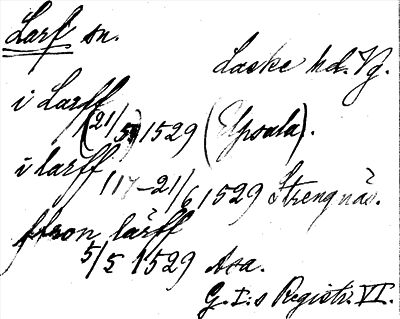 Larf sn.
Laske hd. Vg.
i Larff
(21/5) 1529 (Upsala).
i larff
(17-21/6 1529 Strengnäs.
ffron lärff
5/5 1529 Asa.
G. I:s Registr. VI.